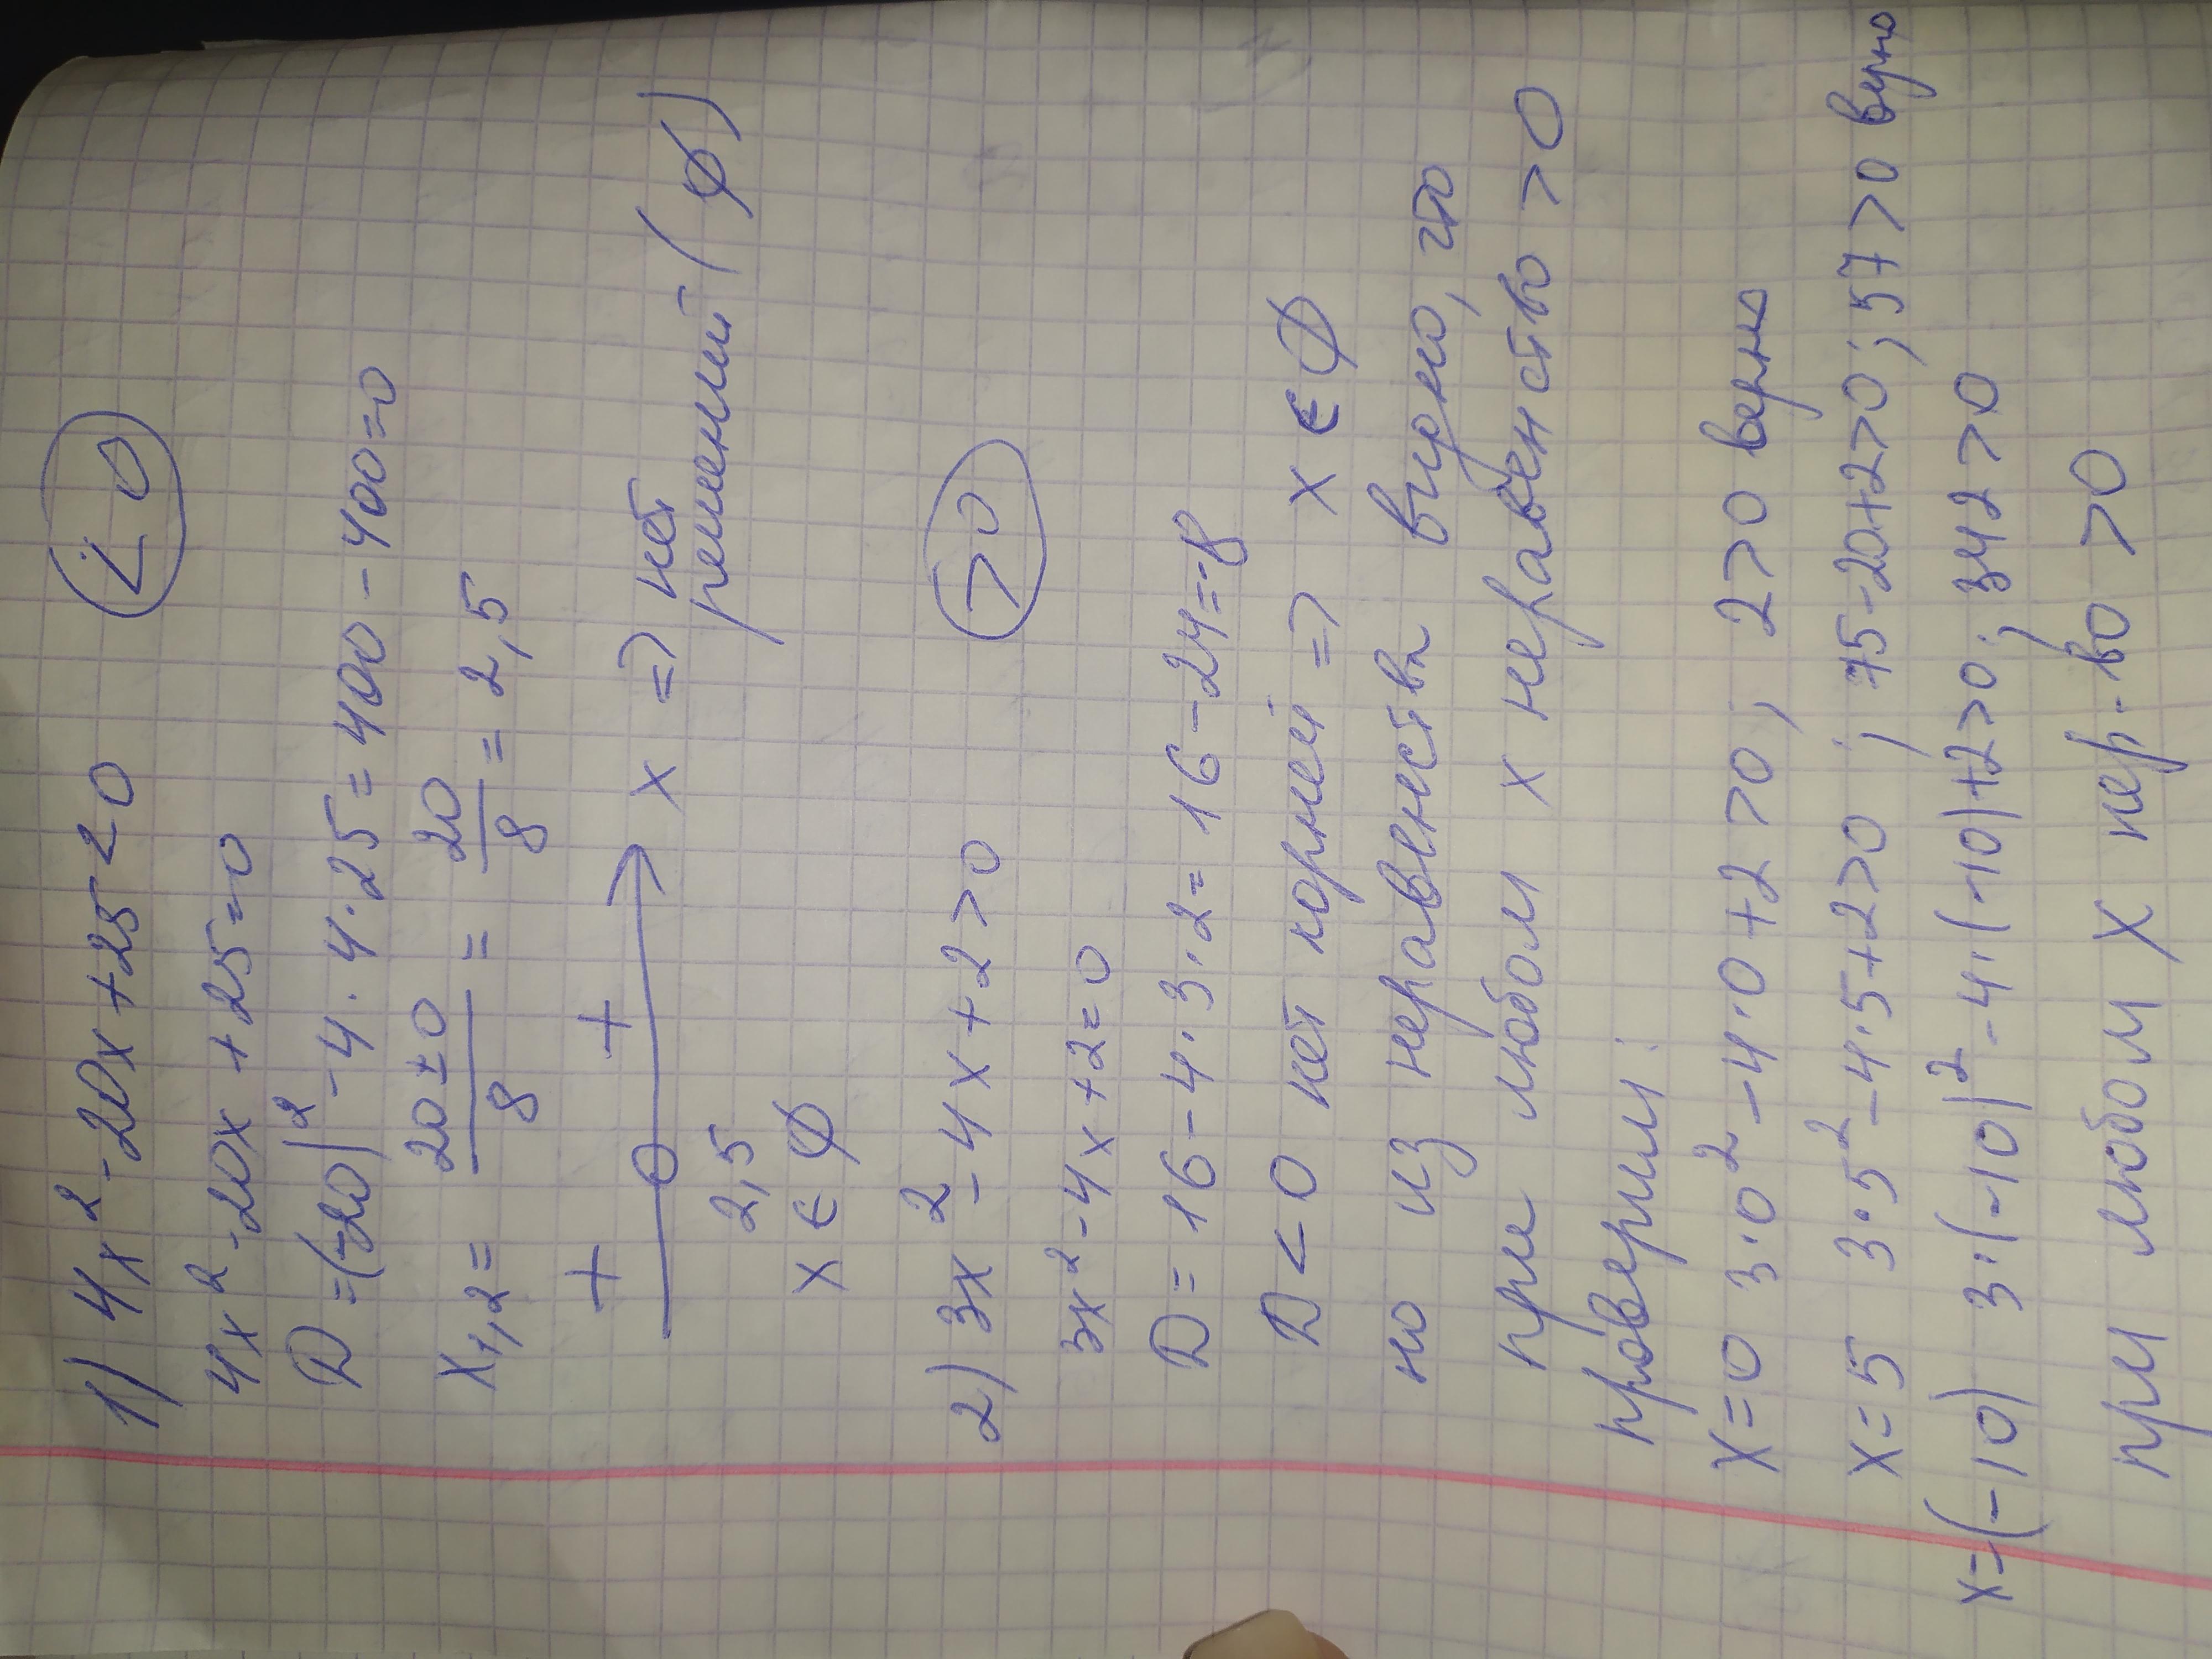 1) 4x² -20x +25 < 0 (< 0)
4x² -20x +25=0
D =(-20)² -4·4·25=400-400=0
x₁,₂= (20±0)/8 = 20/8 = 2,5
+ + x => нет
решений (∅)
2,5
x ∈ ∅
2) 3x² -4x +2 >0 (>0)
3x² -4x+2=0
D=16-4·3·2=16-24=-8
D<0 нет корней => x ∈ ∅
но из неравенства видно, что
при любом x неравенство >0
проверим:
x=0 3·0² -4·0+2>0; 2>0 верно
x=5 3·5² -4·5+2>0 ; 75-20+2>0; 57>0 верно
x=(-10) 3·(-10)² -4·(-10)+2>0; 342>0
при любом x нер-во >0